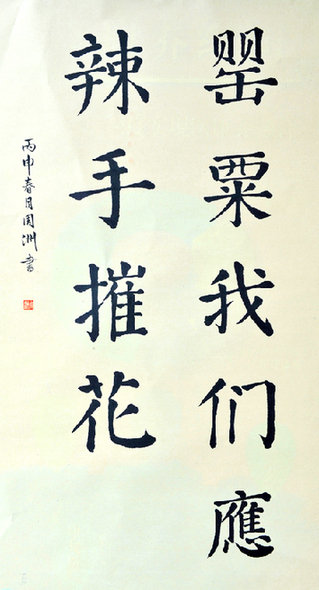 罂粟我们應
辣手摧花
丙申春月国洲書